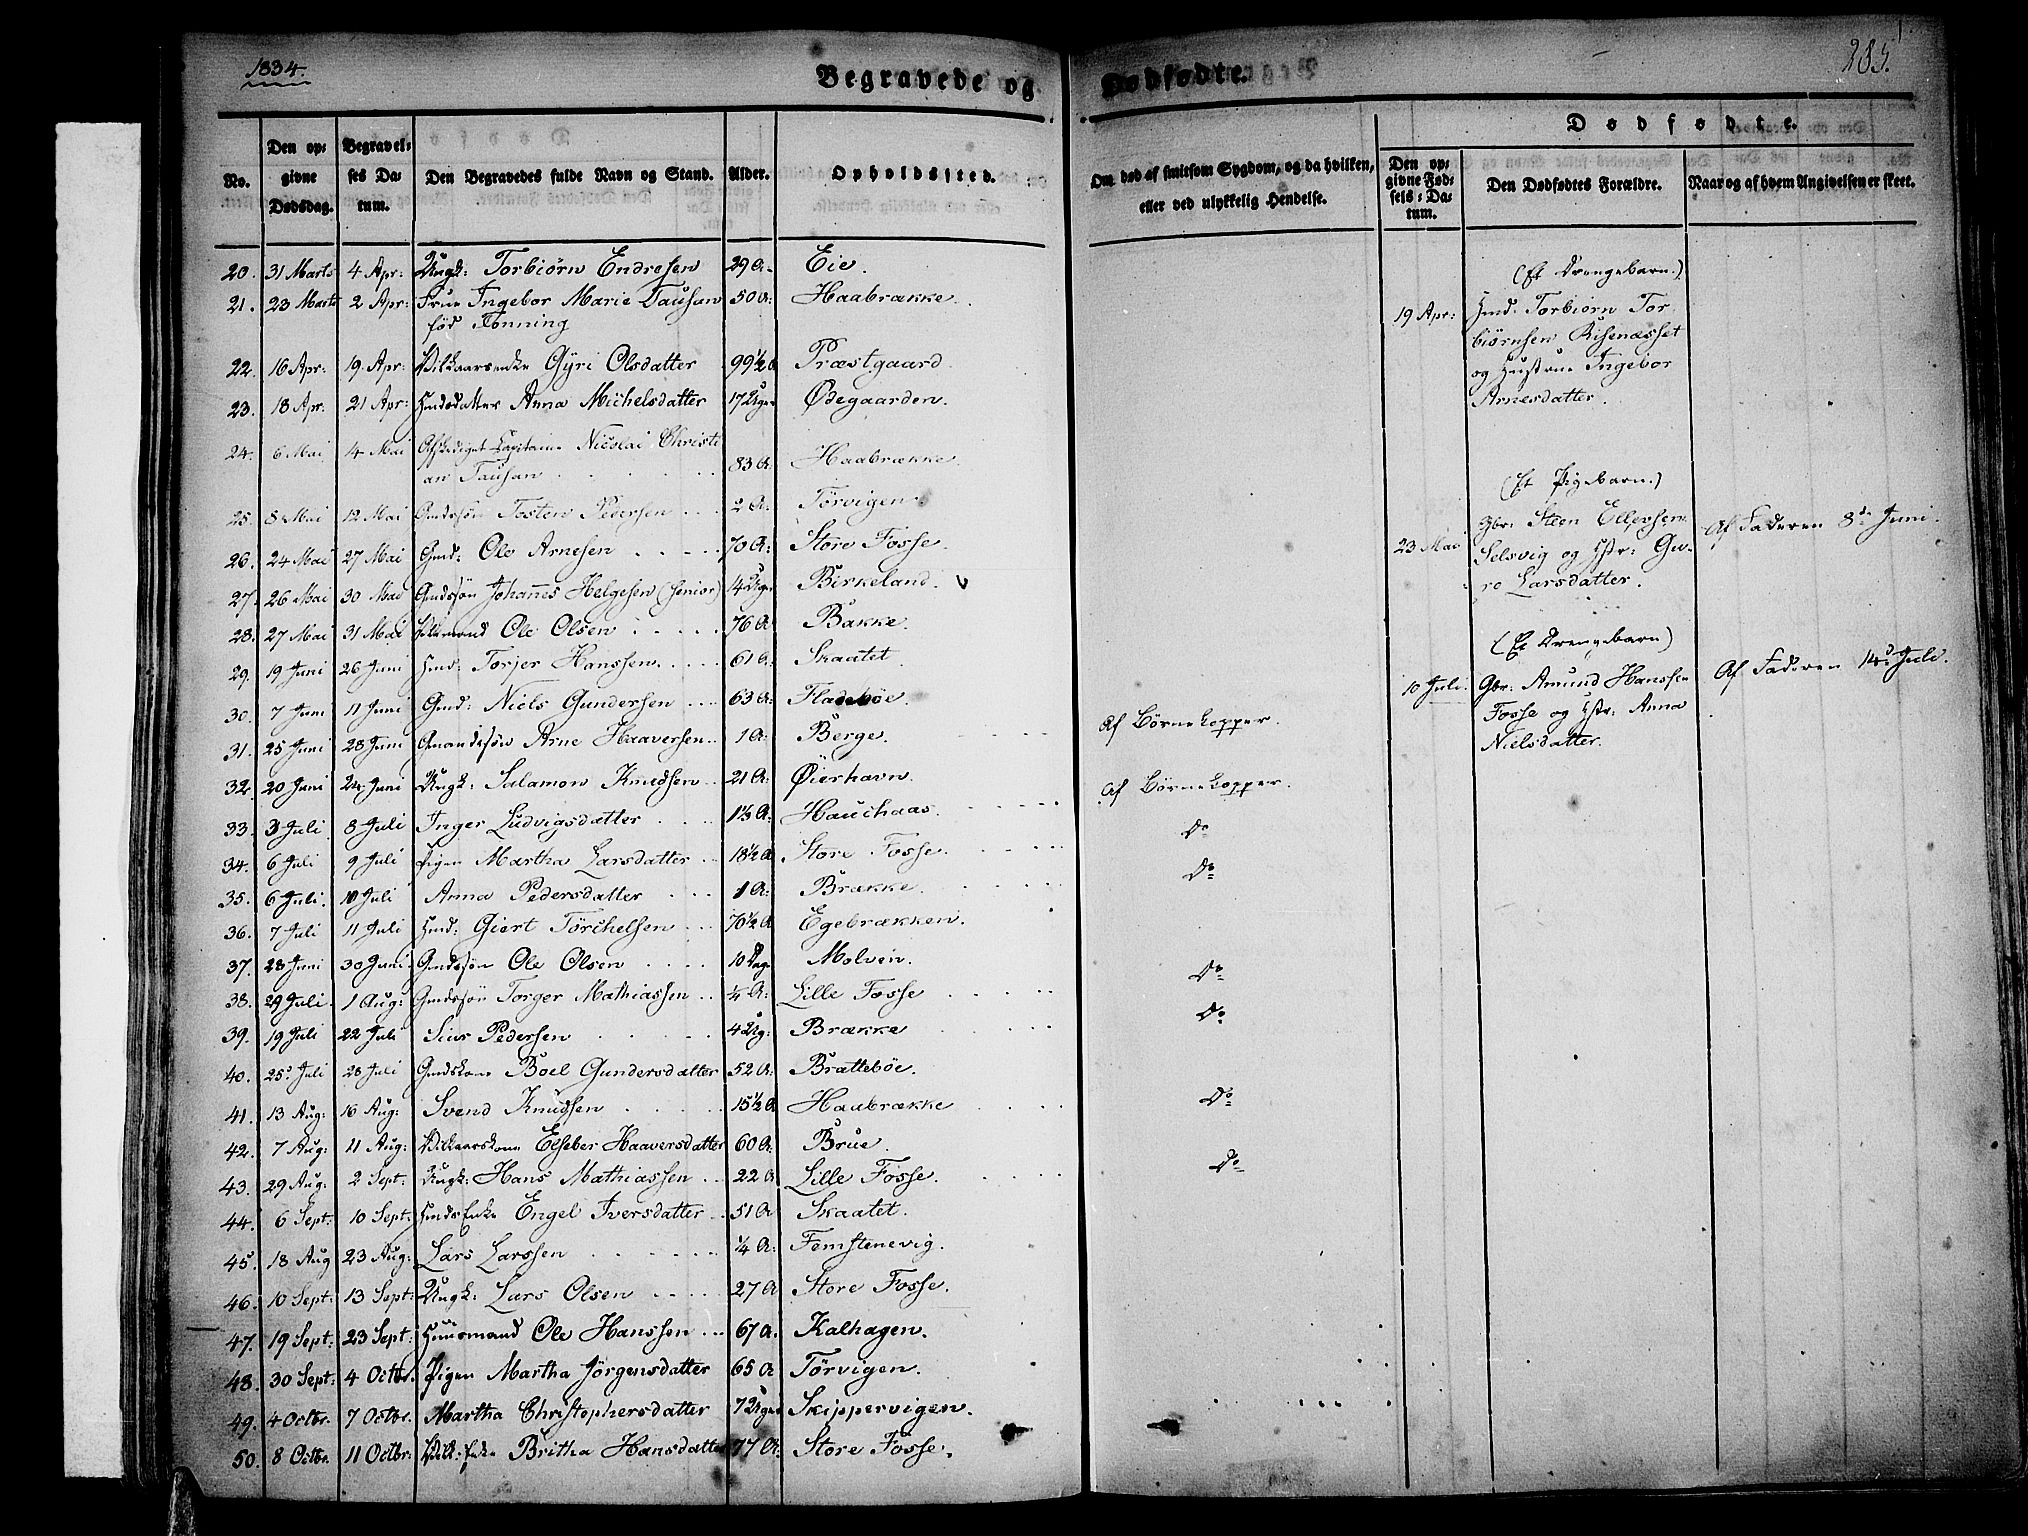 1834.
Begravede og Dødfødte.
285.
No. Den opgivne Dødsdag. Begravelses Datum. Den Begravedes fulde Navn og Stand. Alder. Opholdssted.
Om død af smitsom Sygdom, og da hvilken, eller ved ulykkelig Hendelse.
Dødfødte.
Den opgivne Fødsels-Datum. Den Dødfødtes Forældre. Naar og af hvem Angivelsen er skeet.
20. 31 Marts 4 Apr: Ungk: Torbiørn Endresen 29 A. Eie.
21. 23 Marts 2 Apr: Frue Ingebor Marie Tausan 50 A: Haabrække.
fød Tonning
22. 16 Apr: 19 Apr: Vilkaarsenke Gyri Olsdatter 99½ A Præstgaard
23. 18 Apr: 21 Apr: Anna Michelsdatter 17 Uger Ødegaarden.
24. 6 Mai 4 Mai Afskediget Capitaine Nicolai Christi
an Tausan 83 A: Haabrække.
25. 8 Mai 12 Mai Gmdssøn Tosten Pedersen 2 A: Tørvigen.
26. 24 Mai 27 Mai Gmd: Ole Arnesen 70 A: Store Fosse.
27. 26 Mai 30 Mai Gmdssøn Johannes Helgesen (senior) 14 Uger Birkeland. v
28. 27 Mai 31 Mai Ole Olsen 76 A Bakke.
29. 19 Juni 26 Juni Hmd: Torjer Hanssen 61 A: Skaatet.
30. 7 Juni 11 Juni Gmd: Niels Gundersen 63 A: Fladebøe.
31. 25 Juni 28 Juni Gmandssøn Arne Haaversen 1 A: Berge. Af Børnekopper.
32. 20 Juni 24 Juni Ungk: Salamon Knudsen 21 A: Øierhavn.
33. 3 Juli 8 Juli Inger Ludvigsdatter 1⅓ A: Hauchaas. Af Børnekopper.
34. 6 Juli 9 Juli Pigen Martha Larsdatter 18½ A Store Fosse. Do
35. 6 Juli. 10 Juli Anna Pedersdatter 1 A: Brække. Do
36. 7 Juli 11 Juli Hmd: Giert Tørchelsen 70½ A Egebrækken.
37. 28 Juni 30 Juni. Gmdssøn Ole Olsen 10 Dage Molvin.
38. 29 Juli. 1 Aug: Gmdssøn Torger Mathiassen ¼ A: Lille Fosse Do
39. 19 Juli 22 Juli Siur Pedersen 4 Ug: Brække Do
40. 25 Juli 28 Juli Gmdskone Boel Gundersdatter 52 A: Brattebøe.
41. 13 Aug: 16 Aug: Svend Knudsen 15½ A Haabrække Do
42. 7 Aug: 11 Aug: Vilkaarskone Elseber Haaversdatter 60 A: Brue.
43. 29 Aug: 2 Sept: Ungk: Hans Mathiassen 22 A Lille Fosse. Do
44. 6 Sept: 10 Sept: Hmds Enke Engel Iversdatter 51 A Skaatet.
45. 18 Aug 23 Aug: Lars Larssen ¼ A: Femstenevig.
46. 10 Sept: 13 Sept: Ungk: Lars Olsen 27 A Store Fosse.
47. 19 Sept: 23 Sept: Huusmand Ole Hanssen 67 A: Kalhagen.
48. 30 Sept: 4 Octbr. Pigen Martha Jørgensdatter 65 A Tørvigen.
49. 4 Octbr. 7 Octbr. Martha Christophersdatter 7 Uger Skippervigen.
50. 8 Octbr. 11 Octbr: Vilk: Enke Britha Hansdatter 77 A: Store Fosse.
(Et Drengebarn.)
19 Apr: Hmd: Torbiørn Tor
biørnsen Risenæsset
og Hustrue Ingebor
Arnesdatter.
(Et Pigebarn.)
23 Mai Gbr: Steen Ellevsen
Selsvig og Hstr: Gu-
ro Larsdatter.
Af Faderen 8de Juni.
(Et Drengebarn)
10 Juli. Gbr: Amund Hanssen
Fosse og Hstr: Anna
Nielsdatter.
Af Faderen 14de Juli.